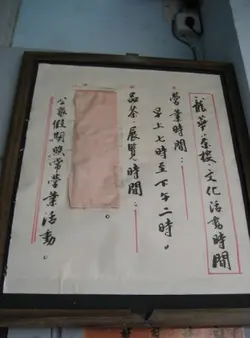 龍華茶樓文化活動時間
營業時間：
早上七時至下午二時。
品茶展覽時間：
公眾假期照常營業活動。